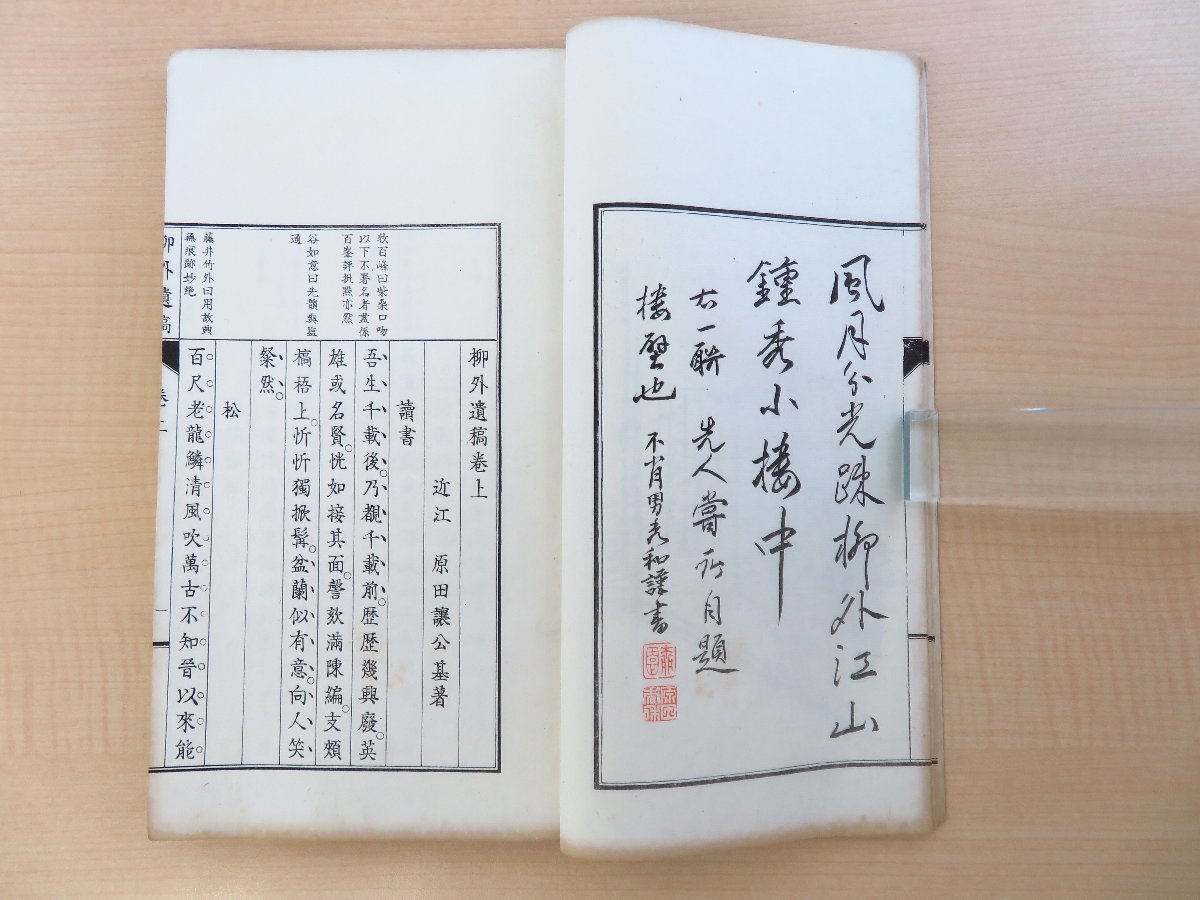 風月分光疎柳外江山
鍾秀小楼中
右一聯　先人嘗所自題
楼壁也　不肖男秀和謹書
牧百峰曰柴桑口吻
以下不署名者盖係
百峯評批點亦然
谷如意曰先韻與
通
藤井竹外曰用故典
無痕跡妙絶
柳外遺稿卷上
近江　原田讓公基著
讀書
吾生千載後。乃覩千載前。歴歴幾興廢。英
雄或名賢。恍如接其面。謦欬滿陳編。支頬
槁梧上。忻忻獨掀髯。盆蘭似有意。向人笑
粲然。
松
百尺老龍鱗清風吹萬古不知晉以來能
柳外遺稿　卷上　一